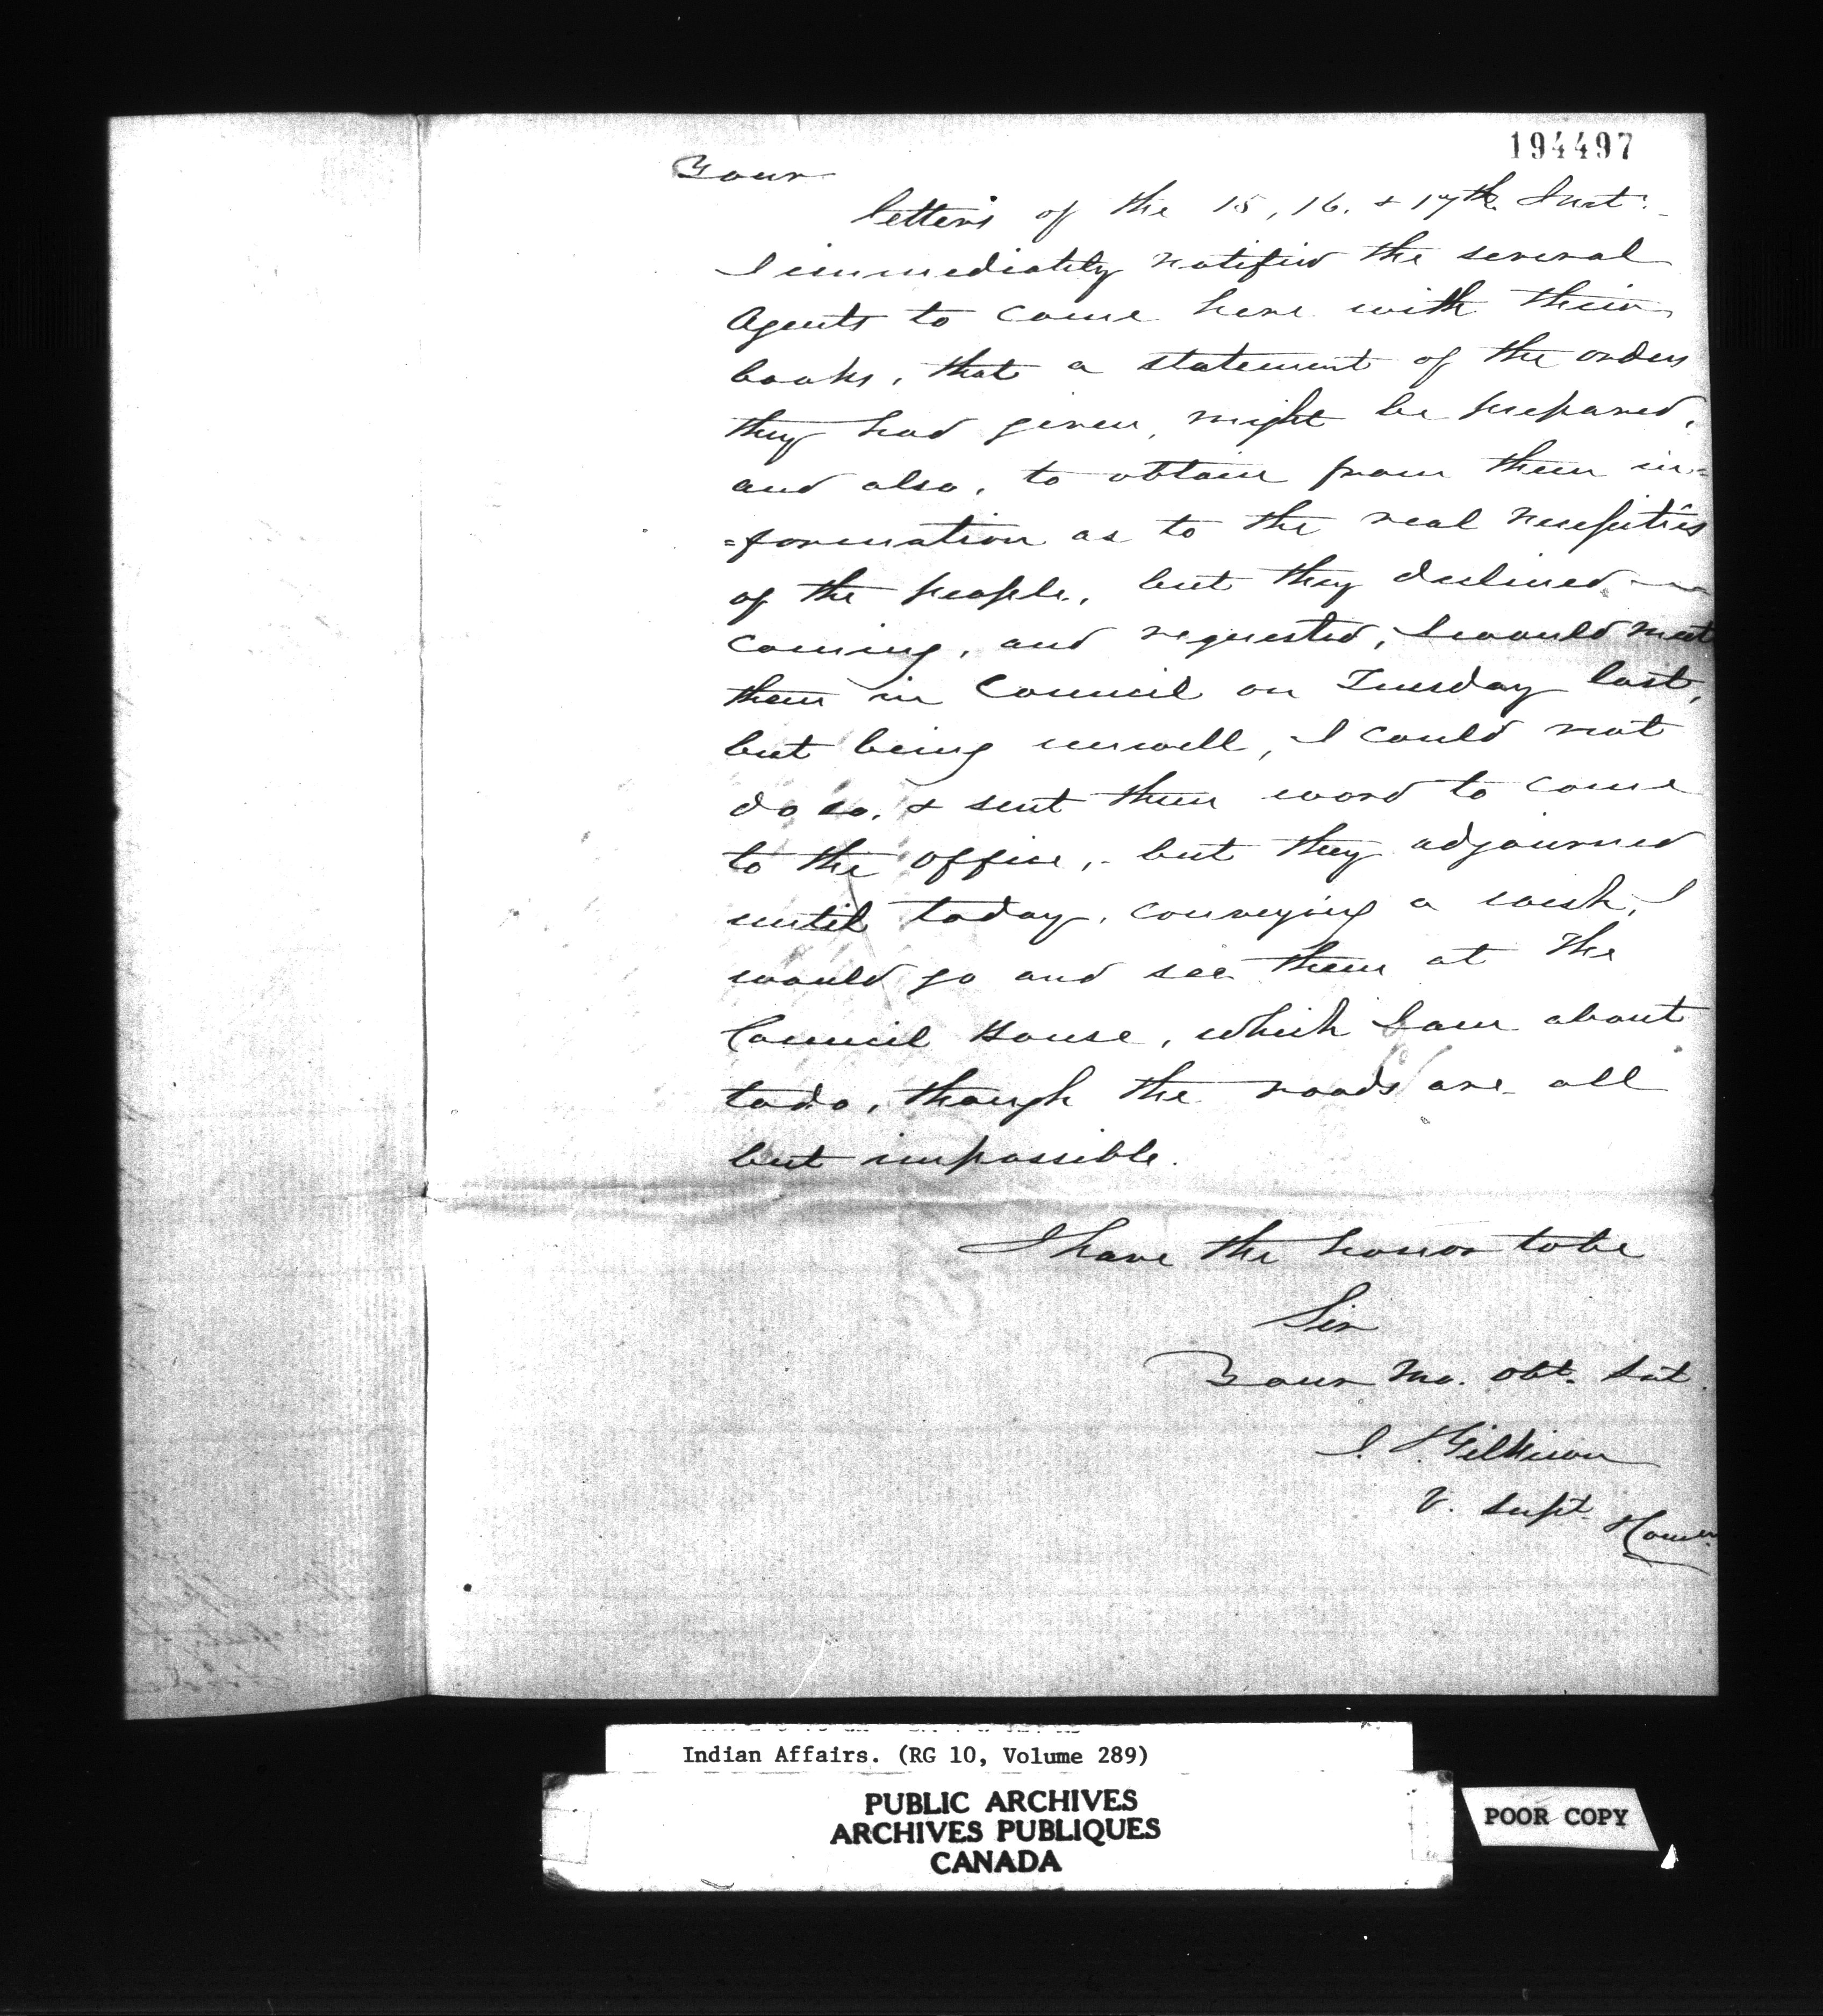 194497
Your
letters of the 15, 16. & 17th. Inst.
I immediately notified the several
Agents to come here with their
books, that a statement of the orders
they had given, might be prepared,
and also, to obtain from them in=
=formation as to the real necessities
of the people, but they declined
coming, and requested, I would meet
them in Council on Tuesday last,
but being unwell, I could not
do so, & sent them word to come
to the office, but they adjourned
until today, conveying a wish, I
would go and see them at the
Council House, which I am about
to do, though the roads are all
but impossible.
I have the honor to be
Sir
Your Mo. Obt. Svt.
J. Gilkison
V. Supt. Comr.
Indian Affairs. (RG 10, Volume 289)
PUBLIC ARCHIVES
ARCHIVES PUBLIQUES
CANADA
POOR COPY